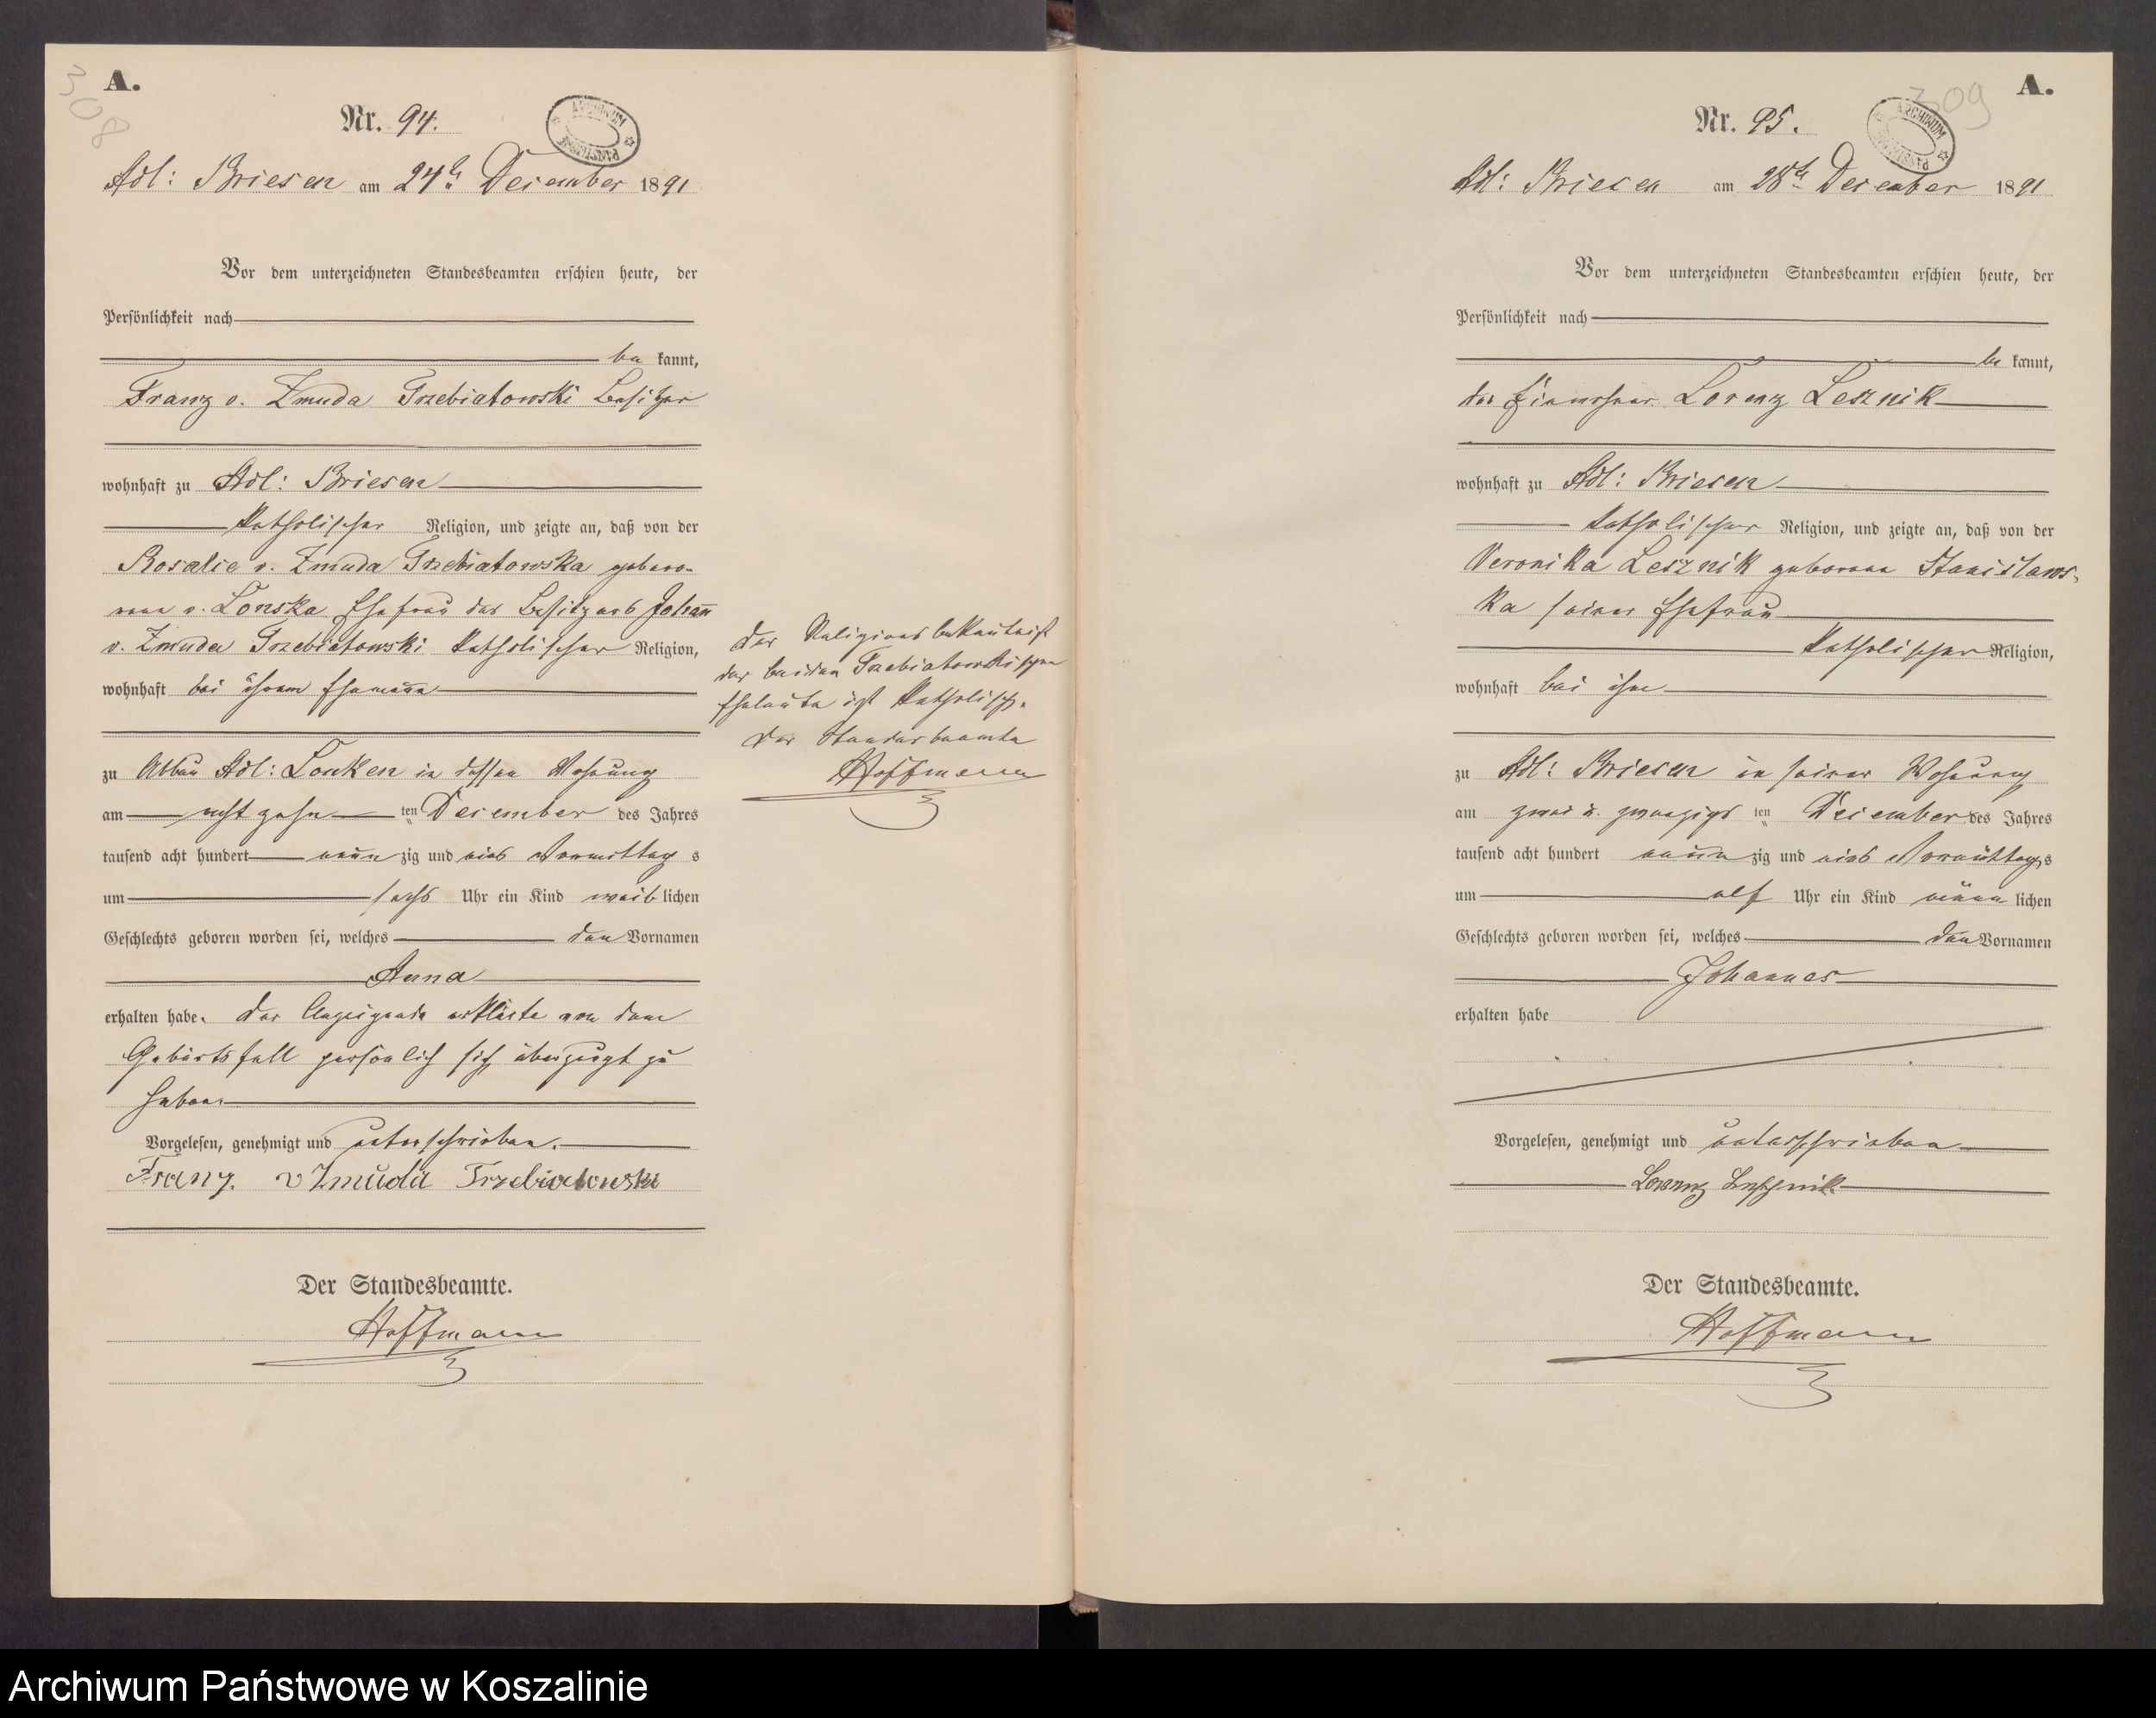 308
A.
Nr. 94.
ARCHIWUM PAŃSTWOWE
Adl: Briesen am 24ten December 1891
Vor dem unterzeichneten Standesbeamten erschien heute, der
Persönlichkeit nach
be kannt,
Franz v. Zmuda Trzebiatowski Besitzer
wohnhaft zu Adl: Briesen
katholischer Religion, und zeigte an, daß von der
Rosalie v. Zmuda Trzebiatowska gebore-
nen v. Lonska Ehefrau des Besitzers Johann
v. Zmuda Trzebiatowski katholischer Religion,
wohnhaft bei ihrem Ehemann
zu Abbau Adl: Lonken in dessen Wohnung
am acht zehn ten December des Jahres
tausend acht hundert neun zig und eins Vormittag s
um sechs Uhr ein Kind weib lichen
Geschlechts geboren worden sei, welches den Vornamen
Anna
erhalten habe. Der Anzeigende erklärte von dem
Geburtsfall persönlich sich überzeugt zu
haben.
Vorgelesen, genehmigt und unterschrieben.
Franz. v Zmuda Trzebiatowski
Der Standesbeamte.
Hoffmann
Das Religionsbekentniß
der beiden Trzebiatowskischen
Eheleute ist katholisch.
Der Standesbeamte
Hoffmann
309
A.
Nr. 95.
ARCHIWUM PAŃSTWOWE
Adl: Briesen am 28ten December 1891
Vor dem unterzeichneten Standesbeamten erschien heute, der
Persönlichkeit nach
be kannt,
der Einwohner Lorenz Lesznik
wohnhaft zu Adl: Briesen
katholischer Religion, und zeigte an, daß von der
Veronika Lesznik geborene Stanislaws-
ka seiner Ehefrau
katholischer Religion,
wohnhaft bei ihm
zu Adl: Briesen in seiner Wohnung
am zwei u. zwanzigs ten December des Jahres
tausend acht hundert neun zig und eins Vormittag s
um elf Uhr ein Kind männ lichen
Geschlechts geboren worden sei, welches den Vornamen
Johannes
erhalten habe
Vorgelesen, genehmigt und unterschrieben
Lorenz Leschnik
Der Standesbeamte.
Hoffmann
Archiwum Państwowe w Koszalinie